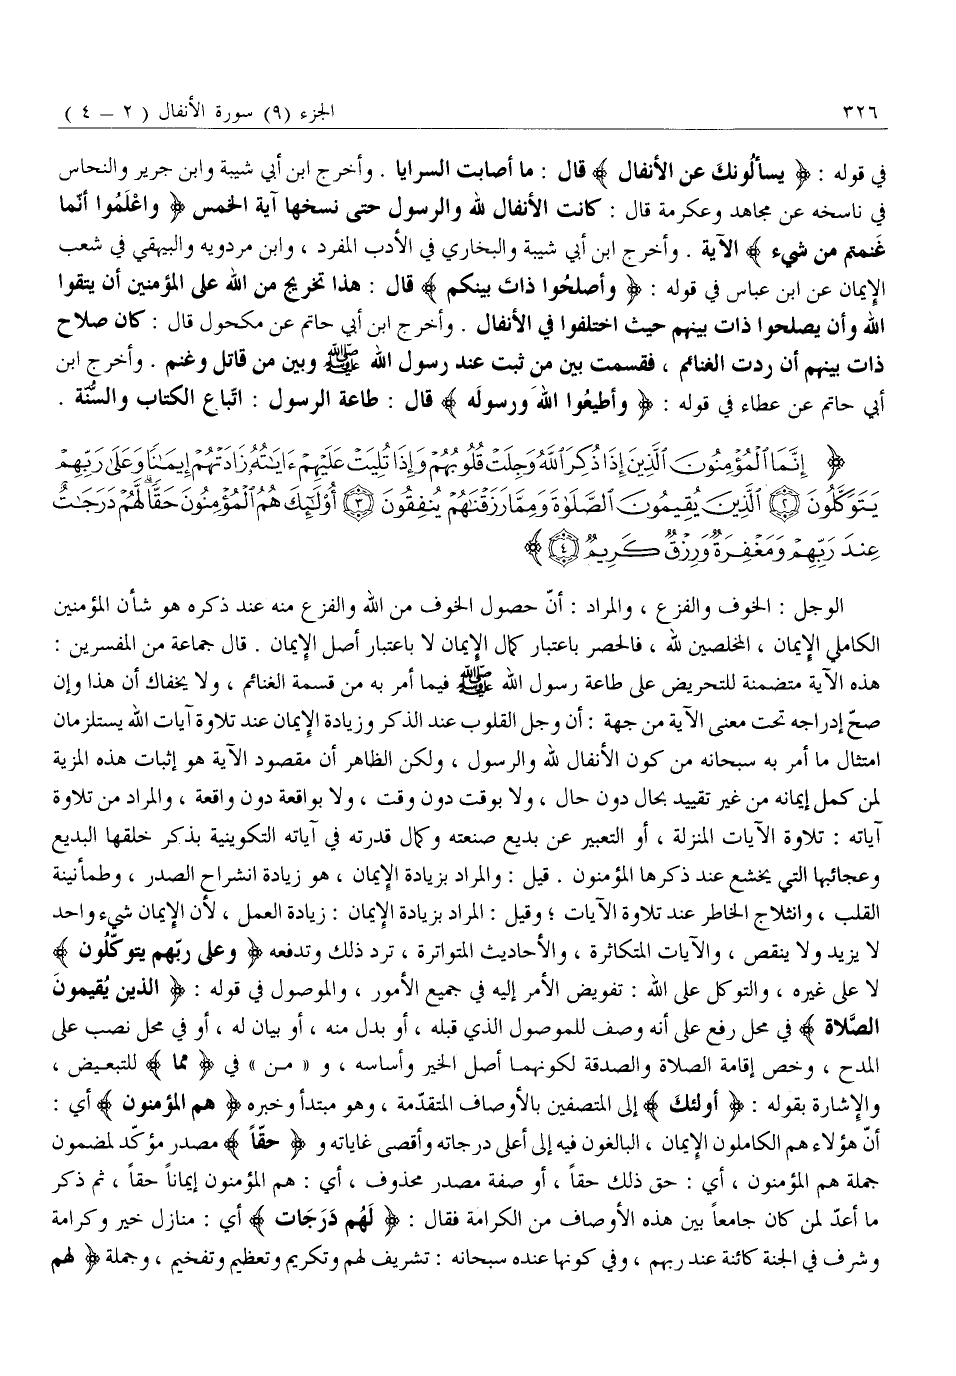 ٣٢٦ الجزء (٩) سورة الأنفال ( ٢ – ٤ )
في قوله : ﴿ يسألُونكَ عن الأنفال ﴾ قال : ما أصابت السرايا . وأخرج ابن أبي شيبة وابن جرير والنحاس
في ناسخه عن مجاهد وعكرمة قال : كانت الأنفال لله والرسول حتى نسخها آية الخمس ﴿ واعْلَمُوا أنّما
غَنمتم من شيء ﴾ الآية . وأخرج ابن أبي شيبة والبخاري في الأدب المفرد ، وابن مردويه والبيهقي في شعب
الإيمان عن ابن عباس في قوله : ﴿ وأصلحُوا ذاتَ بينكم ﴾ قال : هذا تخريج من الله على المؤمنين أن يتقوا
الله وأن يصلحوا ذات بينهم حيث اختلفوا في الأنفال . وأخرج ابن أبي حاتم عن مكحول قال : كان صلاح
ذات بينهم أن ردت الغنائم ، فقسمت بين من ثبت عند رسول الله ﷺ وبين من قاتل وغنم . وأخرج ابن
أبي حاتم عن عطاء في قوله : ﴿ وأطيعُوا اللهَ ورسولَه ﴾ قال : طاعة الرسول : اتّباع الكتاب والسُّنّة .
﴿ إِنَّمَا ٱلْمُؤْمِنُونَ ٱلَّذِينَ إِذَا ذُكِرَ ٱللَّهُ وَجِلَتْ قُلُوبُهُمْ وَإِذَا تُلِيَتْ عَلَيْهِمْ ءَايَٰتُهُۥ زَادَتْهُمْ إِيمَٰنًا وَعَلَىٰ رَبِّهِمْ
يَتَوَكَّلُونَ ﴿٢﴾ ٱلَّذِينَ يُقِيمُونَ ٱلصَّلَوٰةَ وَمِمَّا رَزَقْنَٰهُمْ يُنفِقُونَ ﴿٣﴾ أُو۟لَٰٓئِكَ هُمُ ٱلْمُؤْمِنُونَ حَقًّا ۚ لَّهُمْ دَرَجَٰتٌ
عِندَ رَبِّهِمْ وَمَغْفِرَةٌ وَرِزْقٌ كَرِيمٌ ﴿٤﴾ ﴾
الوجل : الخوف والفزع ، والمراد : أنّ حصول الخوف من الله والفزع منه عند ذكره هو شأن المؤمنين
الكاملي الإيمان ، المخلصين لله ، فالحصر باعتبار كمال الإيمان لا باعتبار أصل الإيمان . قال جماعة من المفسرين :
هذه الآية متضمنة للتحريض على طاعة رسول الله ﷺ فيما أمر به من قسمة الغنائم ، ولا يخفاك أن هذا وإن
صحّ إدراجه تحت معنى الآية من جهة : أن وجل القلوب عند الذكر وزيادة الإيمان عند تلاوة آيات الله يستلزمان
امتثال ما أمر به سبحانه من كون الأنفال لله والرسول ، ولكن الظاهر أن مقصود الآية هو إثبات هذه المزية
لمن كمل إيمانه من غير تقييد بحال دون حال ، ولا بوقت دون وقت ، ولا بواقعة دون واقعة ، والمراد من تلاوة
آياته : تلاوة الآيات المنزلة ، أو التعبير عن بديع صنعته وكمال قدرته في آياته التكوينية بذكر خلقها البديع
وعجائبها التي يخشع عند ذكرها المؤمنون . قيل : والمراد بزيادة الإيمان ، هو زيادة انشراح الصدر ، وطمأنينة
القلب ، وانثلاج الخاطر عند تلاوة الآيات ؛ وقيل : المراد بزيادة الإيمان : زيادة العمل ، لأن الإيمان شيء واحد
لا يزيد ولا ينقص ، والآيات المتكاثرة ، والأحاديث المتواترة ، ترد ذلك وتدفعه ﴿ وعلى ربّهم يتوكّلُون ﴾
لا على غيره ، والتوكل على الله : تفويض الأمر إليه في جميع الأمور ، والموصول في قوله : ﴿ الذين يُقيمونَ
الصَّلاة ﴾ في محل رفع على أنه وصف للموصول الذي قبله ، أو بدل منه ، أو بيان له ، أو في محل نصب على
المدح ، وخص إقامة الصلاة والصدقة لكونهما أصل الخير وأساسه ، و « من » في ﴿ مما ﴾ للتبعيض ،
والإشارة بقوله : ﴿ أولئكَ ﴾ إلى المتصفين بالأوصاف المتقدّمة ، وهو مبتدأ وخبره ﴿ هم المؤمنون ﴾ أي :
أنّ هؤلاء هم الكاملون الإيمان ، البالغون فيه إلى أعلى درجاته وأقصى غاياته و ﴿ حقّاً ﴾ مصدر مؤكّد لمضمون
جملة هم المؤمنون ، أي : حق ذلك حقاً ، أو صفة مصدر محذوف ، أي : هم المؤمنون إيماناً حقاً ، ثم ذكر
ما أعدّ لمن كان جامعاً بين هذه الأوصاف من الكرامة فقال : ﴿ لَهُم دَرَجَات ﴾ أي : منازل خير وكرامة
وشرف في الجنة كائنة عند ربهم ، وفي كونها عنده سبحانه : تشريف لهم وتكريم وتعظيم وتفخيم ، وجملة ﴿ لهم